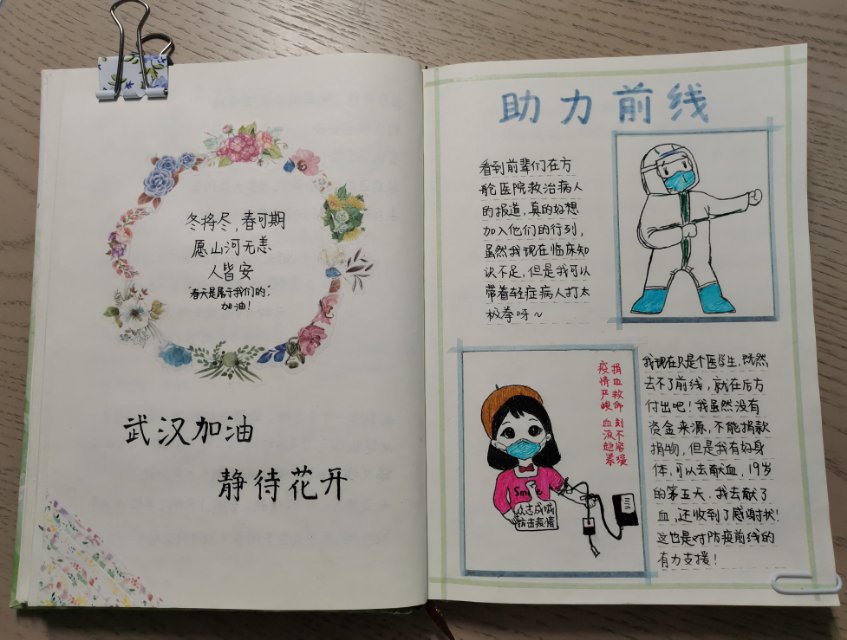 冬将尽,春可期
愿山河无恙
人皆安
"春天是属于我们的"
加油!
武汉加油
静待花开
助力前线
看到前辈们在方
舱医院救治病人
的报道,真的好想
加入他们的行列,
虽然我现在临床知
识不足,但是我可以
带着轻症病人打太
极拳呀~
捐血救命 刻不容缓
疫情严峻 血液
Smile
众志成城
抗击疫情
我现在只是个医学生,既然
去不了前线,就在后方
付出吧!我虽然没有
资金来源,不能捐款
捐物,但是我有好身
体,可以去献血,19岁
的第五天,我去献了
血,还收到了感谢状!
这也是对防疫前线的
有力支援!